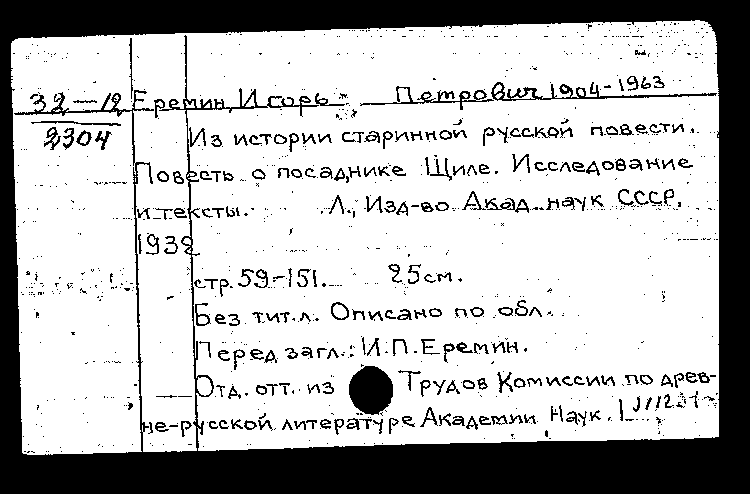 32-12 Еремин, Игорь Петрович 1904-1963
2304 Из истории старинной русской повести.
Повесть о посаднике Щиле. Исследование
и тексты. Л., Изд-во Акад. наук СССР.
1932
стр. 59-151. 25 см.
Без тит.л. Описано по обл.
Перед загл.: И.П.Еремин.
Отд. отт. из Трудов Комиссии по древ-
не-русской литературе Академии Наук.